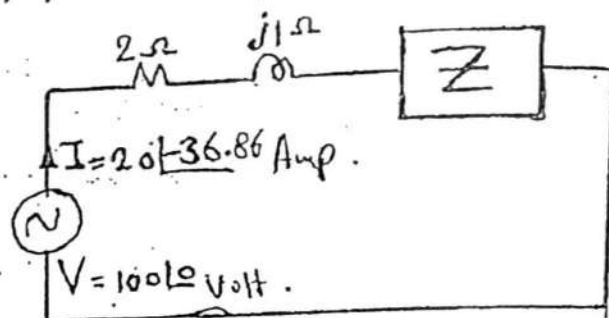 2Ω
j1Ω
Z
I=20∠-36.86 Amp.
V=100∠0 volt.